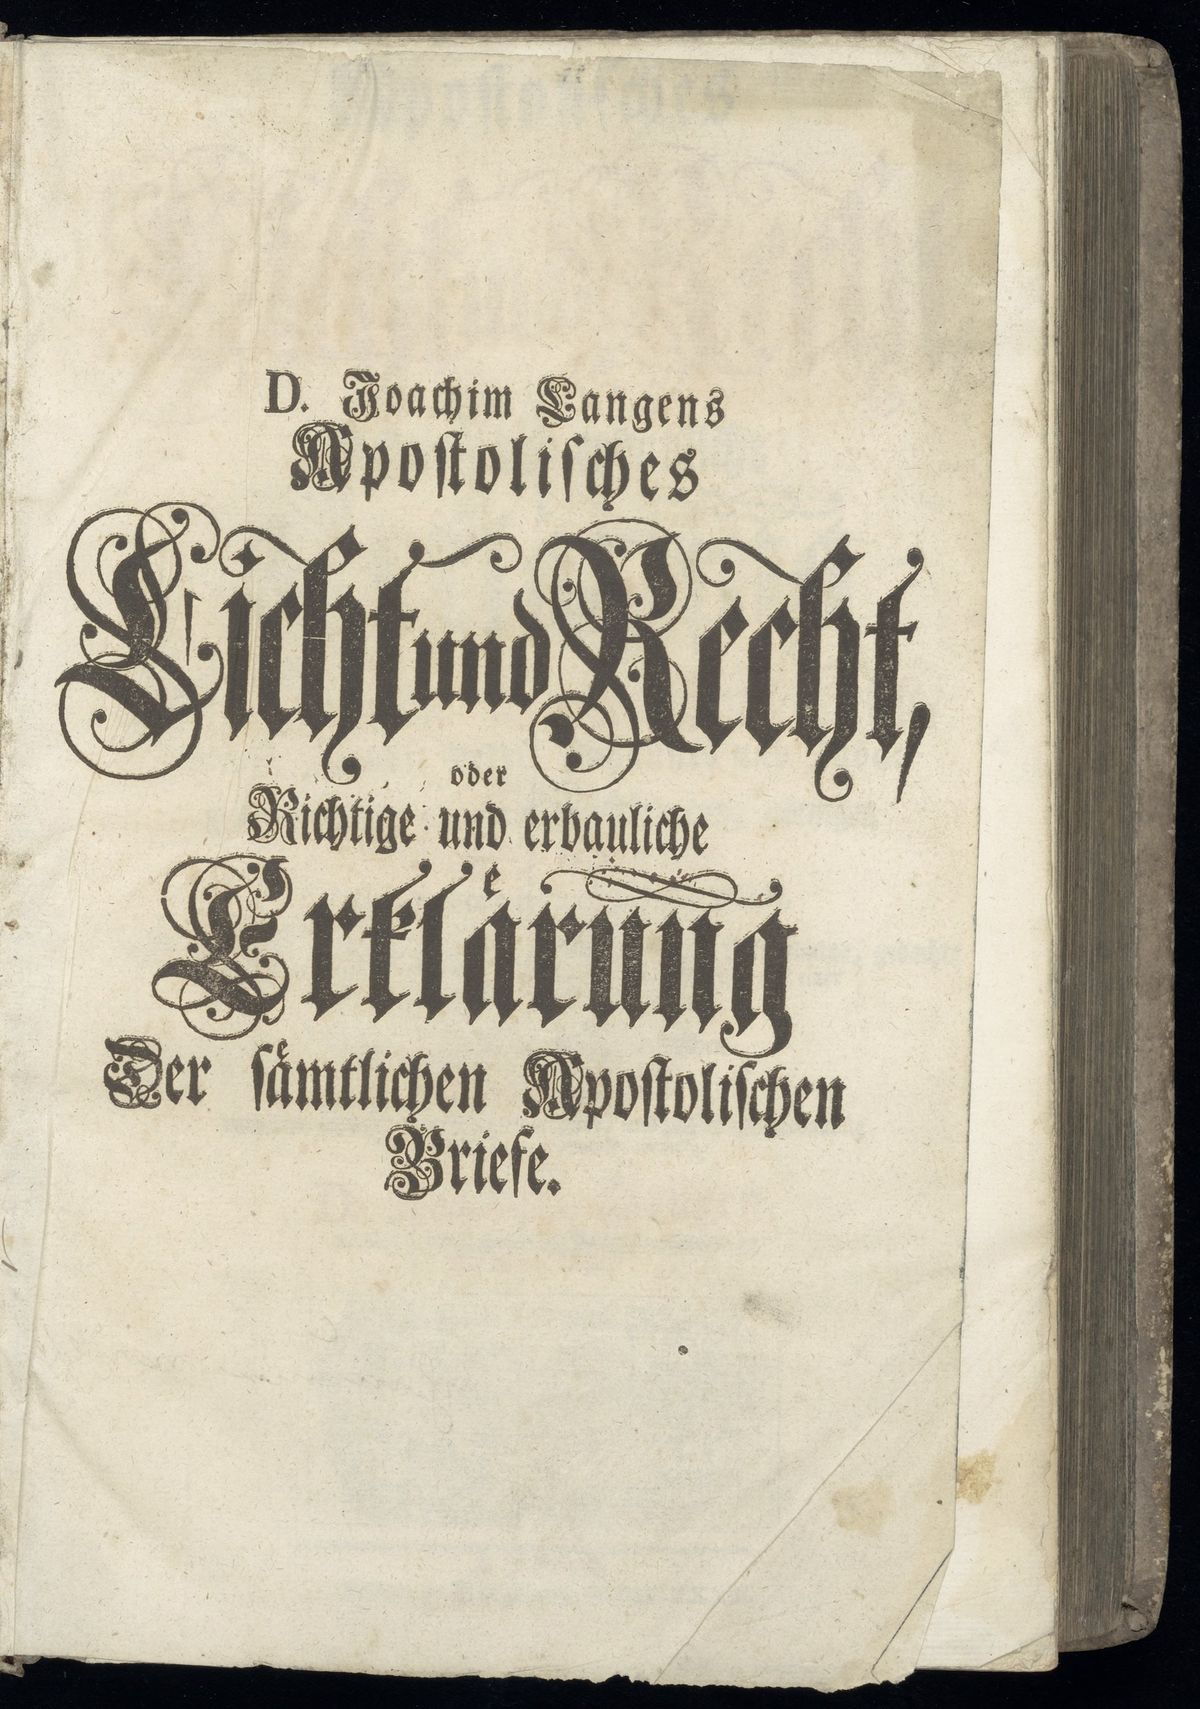 D. Joachim Langens
Apostolisches
Licht und Recht,
oder
Richtige und erbauliche
Erklaͤrung
Der saͤmtlichen Apostolischen
Briefe.